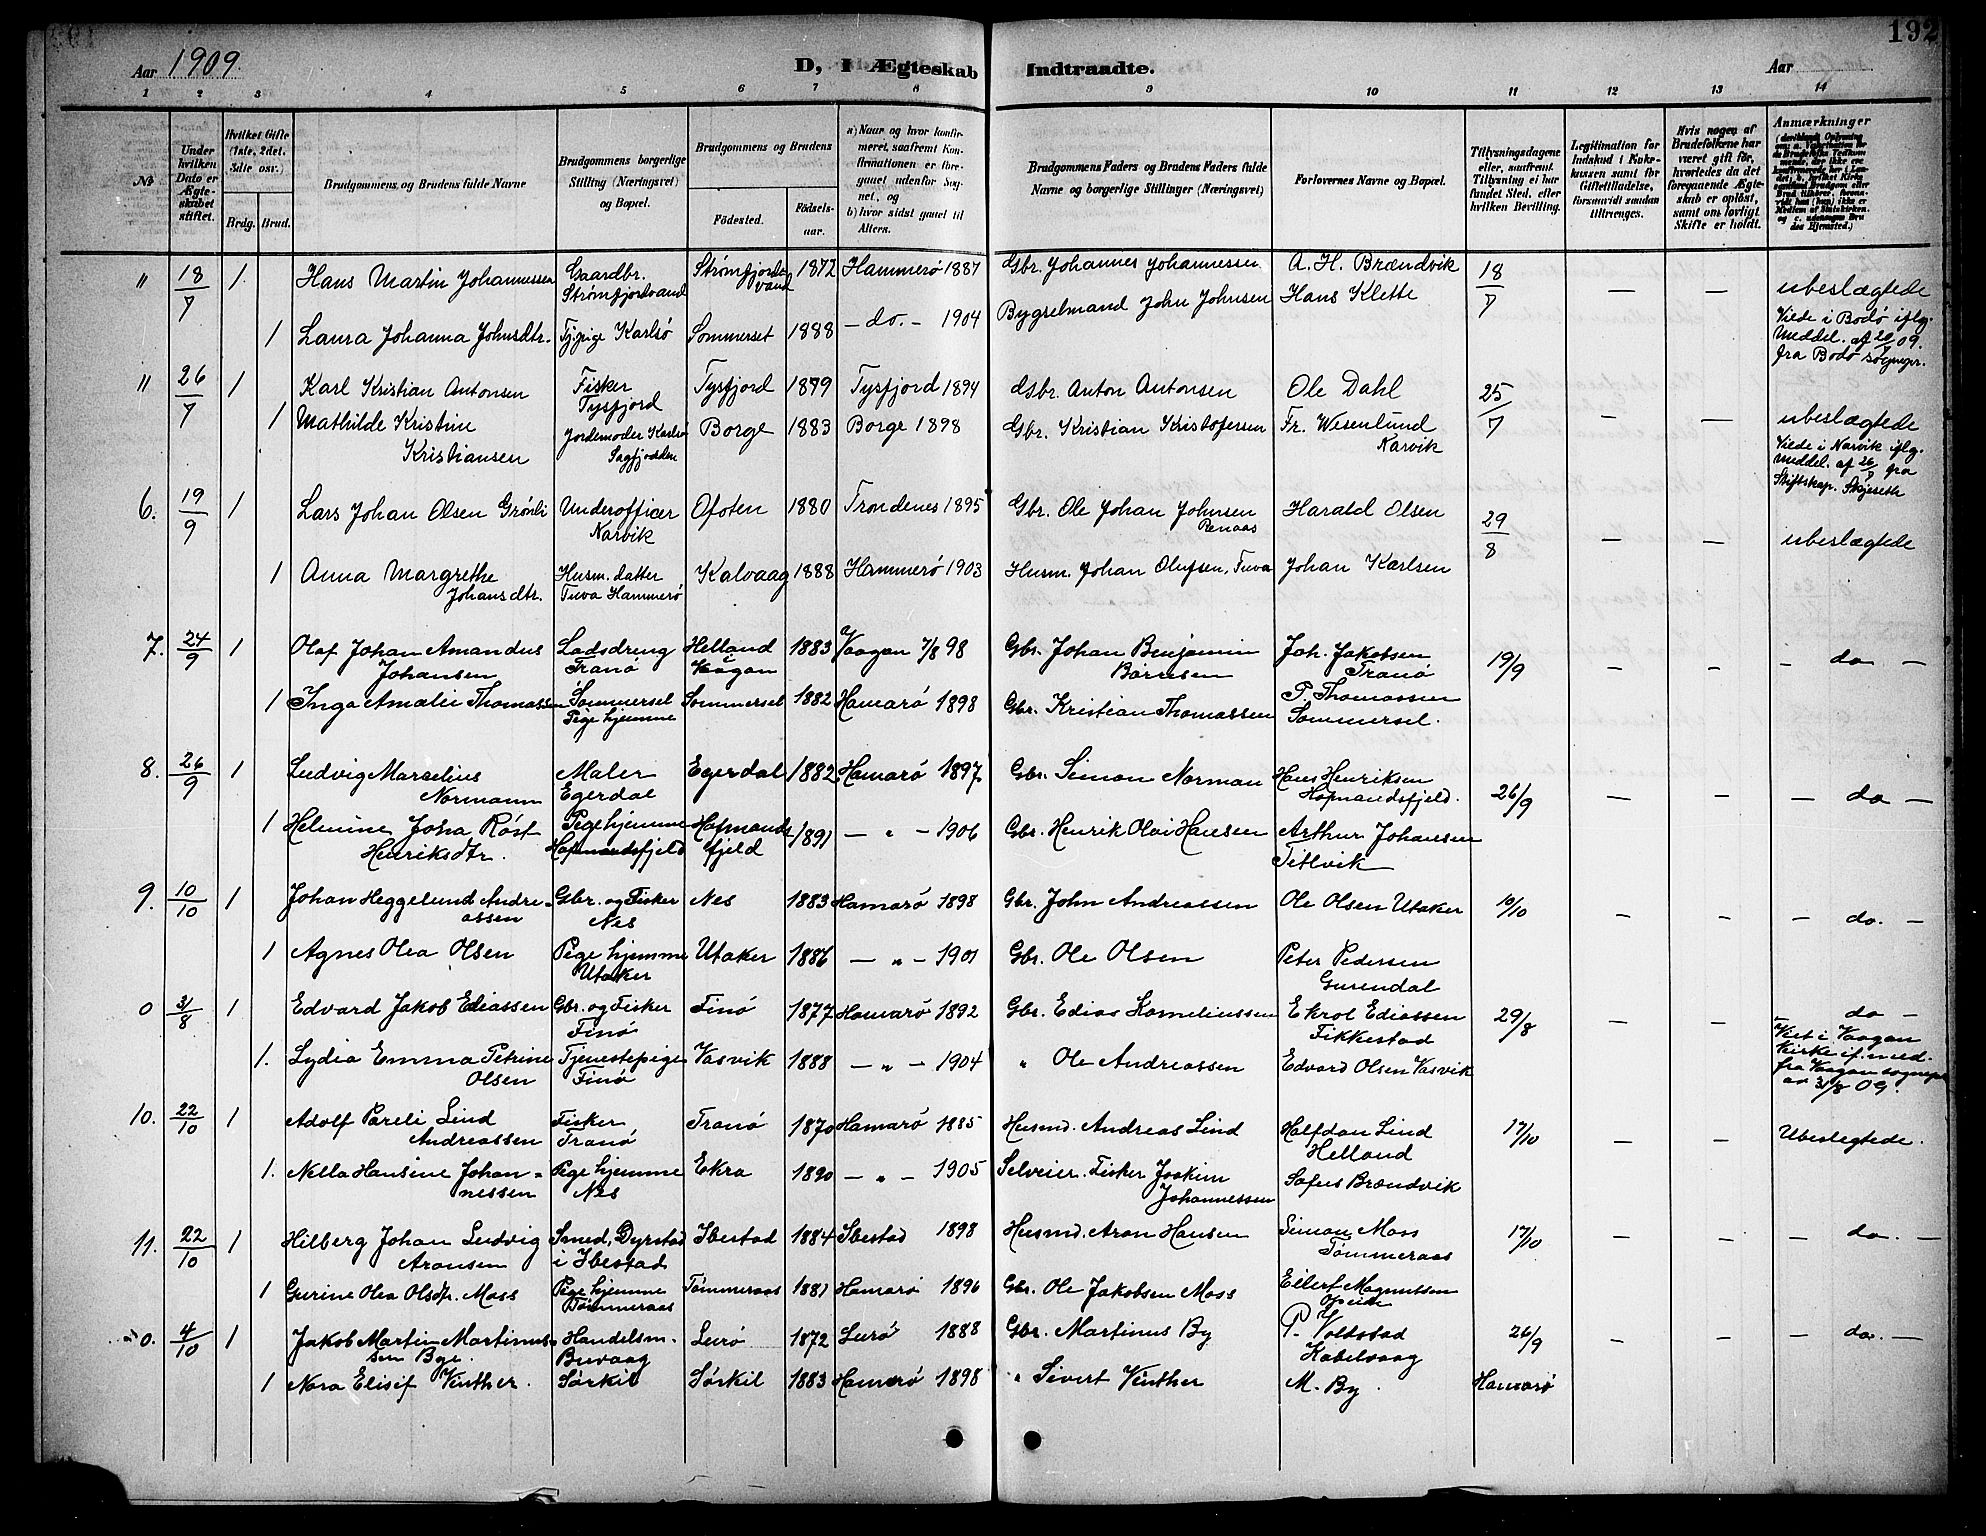 192
Aar 1909.
D, I Ægteskab Indtraadte.
Aar
1 2 3 4 5 6 7 8 9 10 11 12 13 14
No
Under hvilken Dato er Ægteskabet stiftet.
Hvilket Gifte (1ste, 2det, 3die osv.)
Brdg. Brud.
Brudgommens og Brudens fulde Navne
Brudgommens borgerlige Stilling (Næringsvei) og Bopæl.
Brudgommens og Brudens
Fødested.
Fødselsaar.
a) Naar og hvor konfirmeret, saafremt Konfirmationen er foregaaet udenfor Sognet, og
b) hvor sidst gaaet til Alters.
Brudgommens Faders og Brudens Faders fulde Navne og borgerlige Stillinger (Næringsvei)
Forlovernes Navne og Bopæl.
Tillysningsdagene eller, saafremt Tillysning ei har fundet Sted, efter hvilken Bevilling.
Legitimation for Indskud i Enkekassen samt for Giftetilladelse, forsaavidt saadan tiltrænges.
Hvis nogen af Brudefolkene har været gift før, hvorledes da det foregaaende Ægteskab er opløst, samt om lovligt Skifte er holdt.
Anmærkninger
" 18/7 1 Hans Martin Johannessen Gaardbr. Strømfjordvand Strømfjordvand 1872 Hammerø 1887 Gbr. Johannes Johannessen A. H. Brændvik 18/7 — — ubeslægtede
1 Laura Johanna Johnsdtr. Karlsø Sommerset 1888 — do. — 1904 Bygselmand John Johnsen Hans Klette Viede i Bodø iflg. Meddel. af 20/9 09. fra Bodø sogнepr.
" 26/7 1 Karl Kristian Antonsen Fisker Tysfjord Tysfjord 1879 Tysfjord 1894 Gbr. Anton Antonsen Ole Dahl 25/7 — — ubeslægtede
1 Mathilde Kristine Kristiansen Jordemoder Karlsø Sagfjorden Borge 1883 Borge 1898 Gbr. Kristian Kristofersen Fr. Wesenlund Narvik Viede i Narvik iflg. Meddel. af 26/7 fra Stiftskap. Skjeseth
6. 19/9 1 Lars Johan Olsen Grønli Underofficer Narvik Ofoten 1880 Trondenes 1895 Gbr. Ole Johan Johnsen Renaas Harald Olsen 29/8 — — ubeslægtede
1 Anna Margrethe Johansdtr. Husm. datter Tuva Hammerø Kalvaag 1888 Hammerø 1903 Husm. Johan Olufsen, Tuva Johan Karlsen
7. 24/9 1 Olaf Johan Amandus Johansen Ladsdreng Tranø Helland Vaagan 1883 Vaagan 7/8 98 Gbr. Johan Benjamin Børresen Joh. Jakobsen Tranø 19/9 — — — do —
1 Inga Amalie Thomassen Sommersel Pige hjemme Sommersel 1882 Hamarø 1898 Gbr. Kristian Thomassen P. Thomassen Sommersel.
8. 26/9 1 Ludvig Marselius Normann Maler Egerdal Egerdal 1882 Hamarø 1897 Gbr. Simon Norman Hans Henriksen Hofmandsfjeld. 26/9 — — — do —
1 Helmine Joha Røst Henriksdtr. Pige hjemme Hofmandsfjeld Hofmandsfjeld 1891 — " — 1906 Gbr. Henrik Olai Hansen Arthur Johansen Titlvik
9. 10/10 1 Johan Heggelund Andreassen Gbr. og Fisker Nes Nes 1883 Hamarø 1898 Gbr. John Andreassen Ole Olsen Utaker 10/10 — — — do. —
1 Agnes Olea Olsen Pige hjemme Utaker Utaker 1886 — " — 1901 Gbr. Ole Olsen Peter Pedersen
0 31/8 1 Edvard Jakob Ediassen Gbr. og Fisker Finø Finø 1877 Hamarø 1892 Gbr. Edias Korneliussen Ekrol Ediassen Fikkestad 29/8 — — — do —
1. Lydia Emma Petrine Olsen Tjenestepige Finø Vasvik 1888 — " — 1904 " Ole Andreassen Edvard Olsen Vasvik Viet i Vaagan Kirke if. med. fra Vaagan sognepr. av 31/8 09.
10. 22/10 1 Adolf Pareli Lind Andreassen Fisker Tranø Tranø 1870 Hamarø 1885 Husmd. Andreas Lind Halfdan Lind Helland 17/10 — — Ubeslegtede.
1. Nella Hansine Johannessen Pige hjemme Nes Ekra 1890 — " — 1905 Selveier. Fisker Joakim Johannessen Sofus Brændvik
11. 22/10 1 Hilberg Johan Ludvig Aronsen Smed, Dyrstad i Ibestad Ibestad 1884 Ibestad 1898 Husmd. Aron Hansen Simon Moss Tømmeraas 17/10 — — — do. —
1 Gurine Olea Olsdtr. Moss Pige hjemme Tømmeraas Tømmeraas 1881 Hamarø 1896 Gbr. Ole Jakobsen Moss Eilert Magnussen
0. 4/10 1 Jakob Martin Martinussen Bye. Handelsm. Buvaag Lurø 1872 Lurø 1888 Gbr. Martinus By P. Voldstad Kabelvaag 26/9 — — — do. —
1 Nora Elisif Vinther. Sørkil Sørkil 1883 Hamarø 1898 " Sivert Vinther M. By. Hamarø